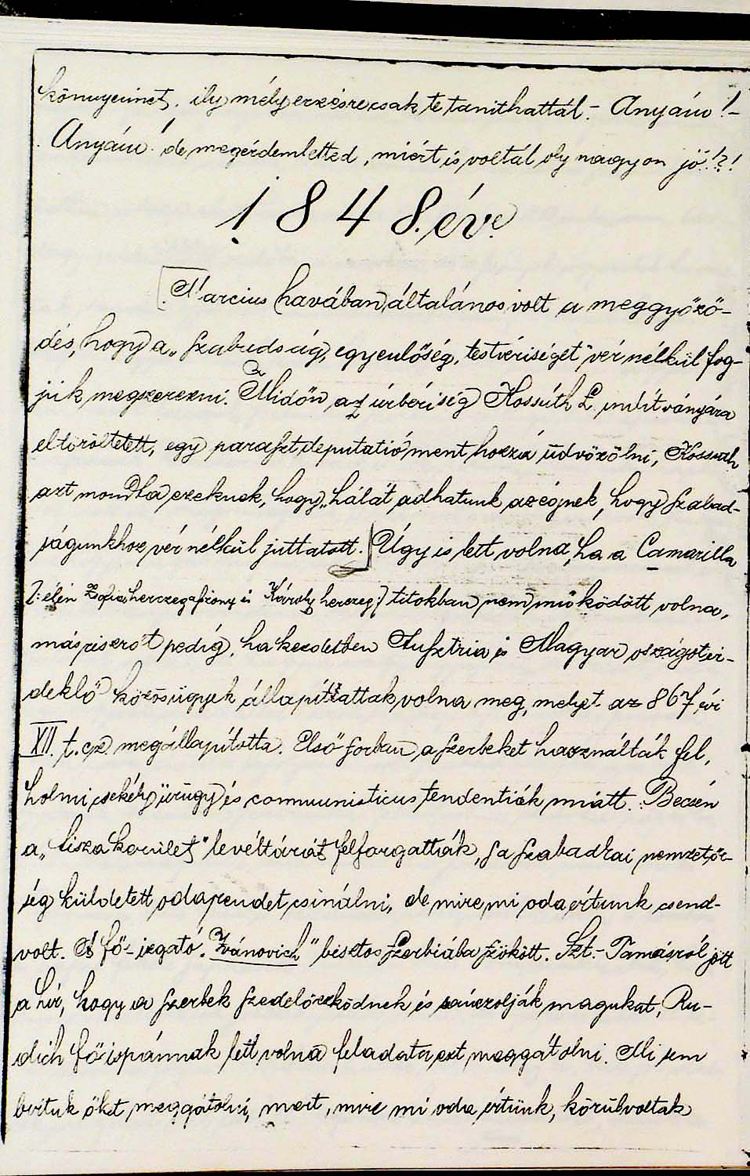 könnyeimet, ily mély érzésre csak te taníthattál. - Anyám! -
Anyám! de megérdemletted, miért is voltál oly nagyon jó!?!
1848. év.
[Március havában általános volt a meggyőző-
dés, hogy a „szabadság, egyenlőség, testvériséget" vér nélkül fog-
juk megszerezni. Midőn az úrbériség Kossuth L. indítványára
eltöröltetett, egy paraszt deputatió ment hozzá üdvözölni, Kossuth
azt mondta ezeknek, hogy, hálát adhatunk az égnek, hogy szabad-
ságunkhoz vér nélkül juttatott.] Úgy is lett volna, ha a Camarilla
/: élén Zofia herczegasszony és Károly herczeg/ titokban nem működött volna,
másrészről pedig, ha kezdetben Ausztria és Magyar országot ér-
deklő közösügyek állapíttattak volna meg, melyet az 867 évi
XII. t. cz. megállapította. Első sorban a szerbeket használták fel,
holmi csekély ürügy és communisticus tendentiák miatt. Becsén
a „tisza kerület" levéltárát felforgatták, s a szabadkai nemzetőr-
ség küldetett oda rendet csinálni, de mire mi oda értünk csend-
volt. A fő-izgató „Ivánovich" biztos Szerbiába szökött. Szt.-Tamásról jött
a hír, hogy a szerbek szedelőzködnek és sánczolják magukat, Ru-
dich főispánnak lett volna feladata ezt meggátolni. Mi sem
bírtuk őket meggátolni, mert, mire mi oda értünk, körül voltak